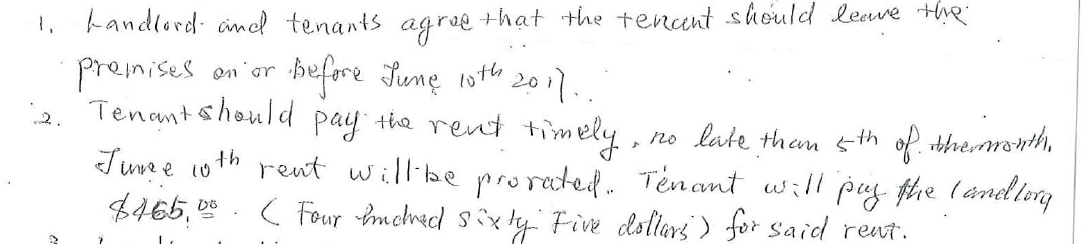 1. Landlord and tenants agree that the tenant should leave the
premises on or before June 10th 2017.
2. Tenant should pay the rent timely, no late than 5th of the month,
June 10th rent will be prorated. Tenant will pay the landlord
$465.00. (Four hundred sixty Five dollars) for said rent.